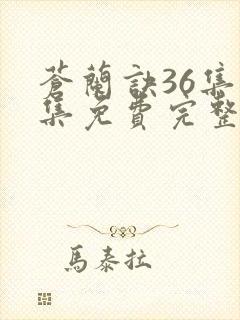 蒼蘭訣36集
集免費完整
馬泰拉